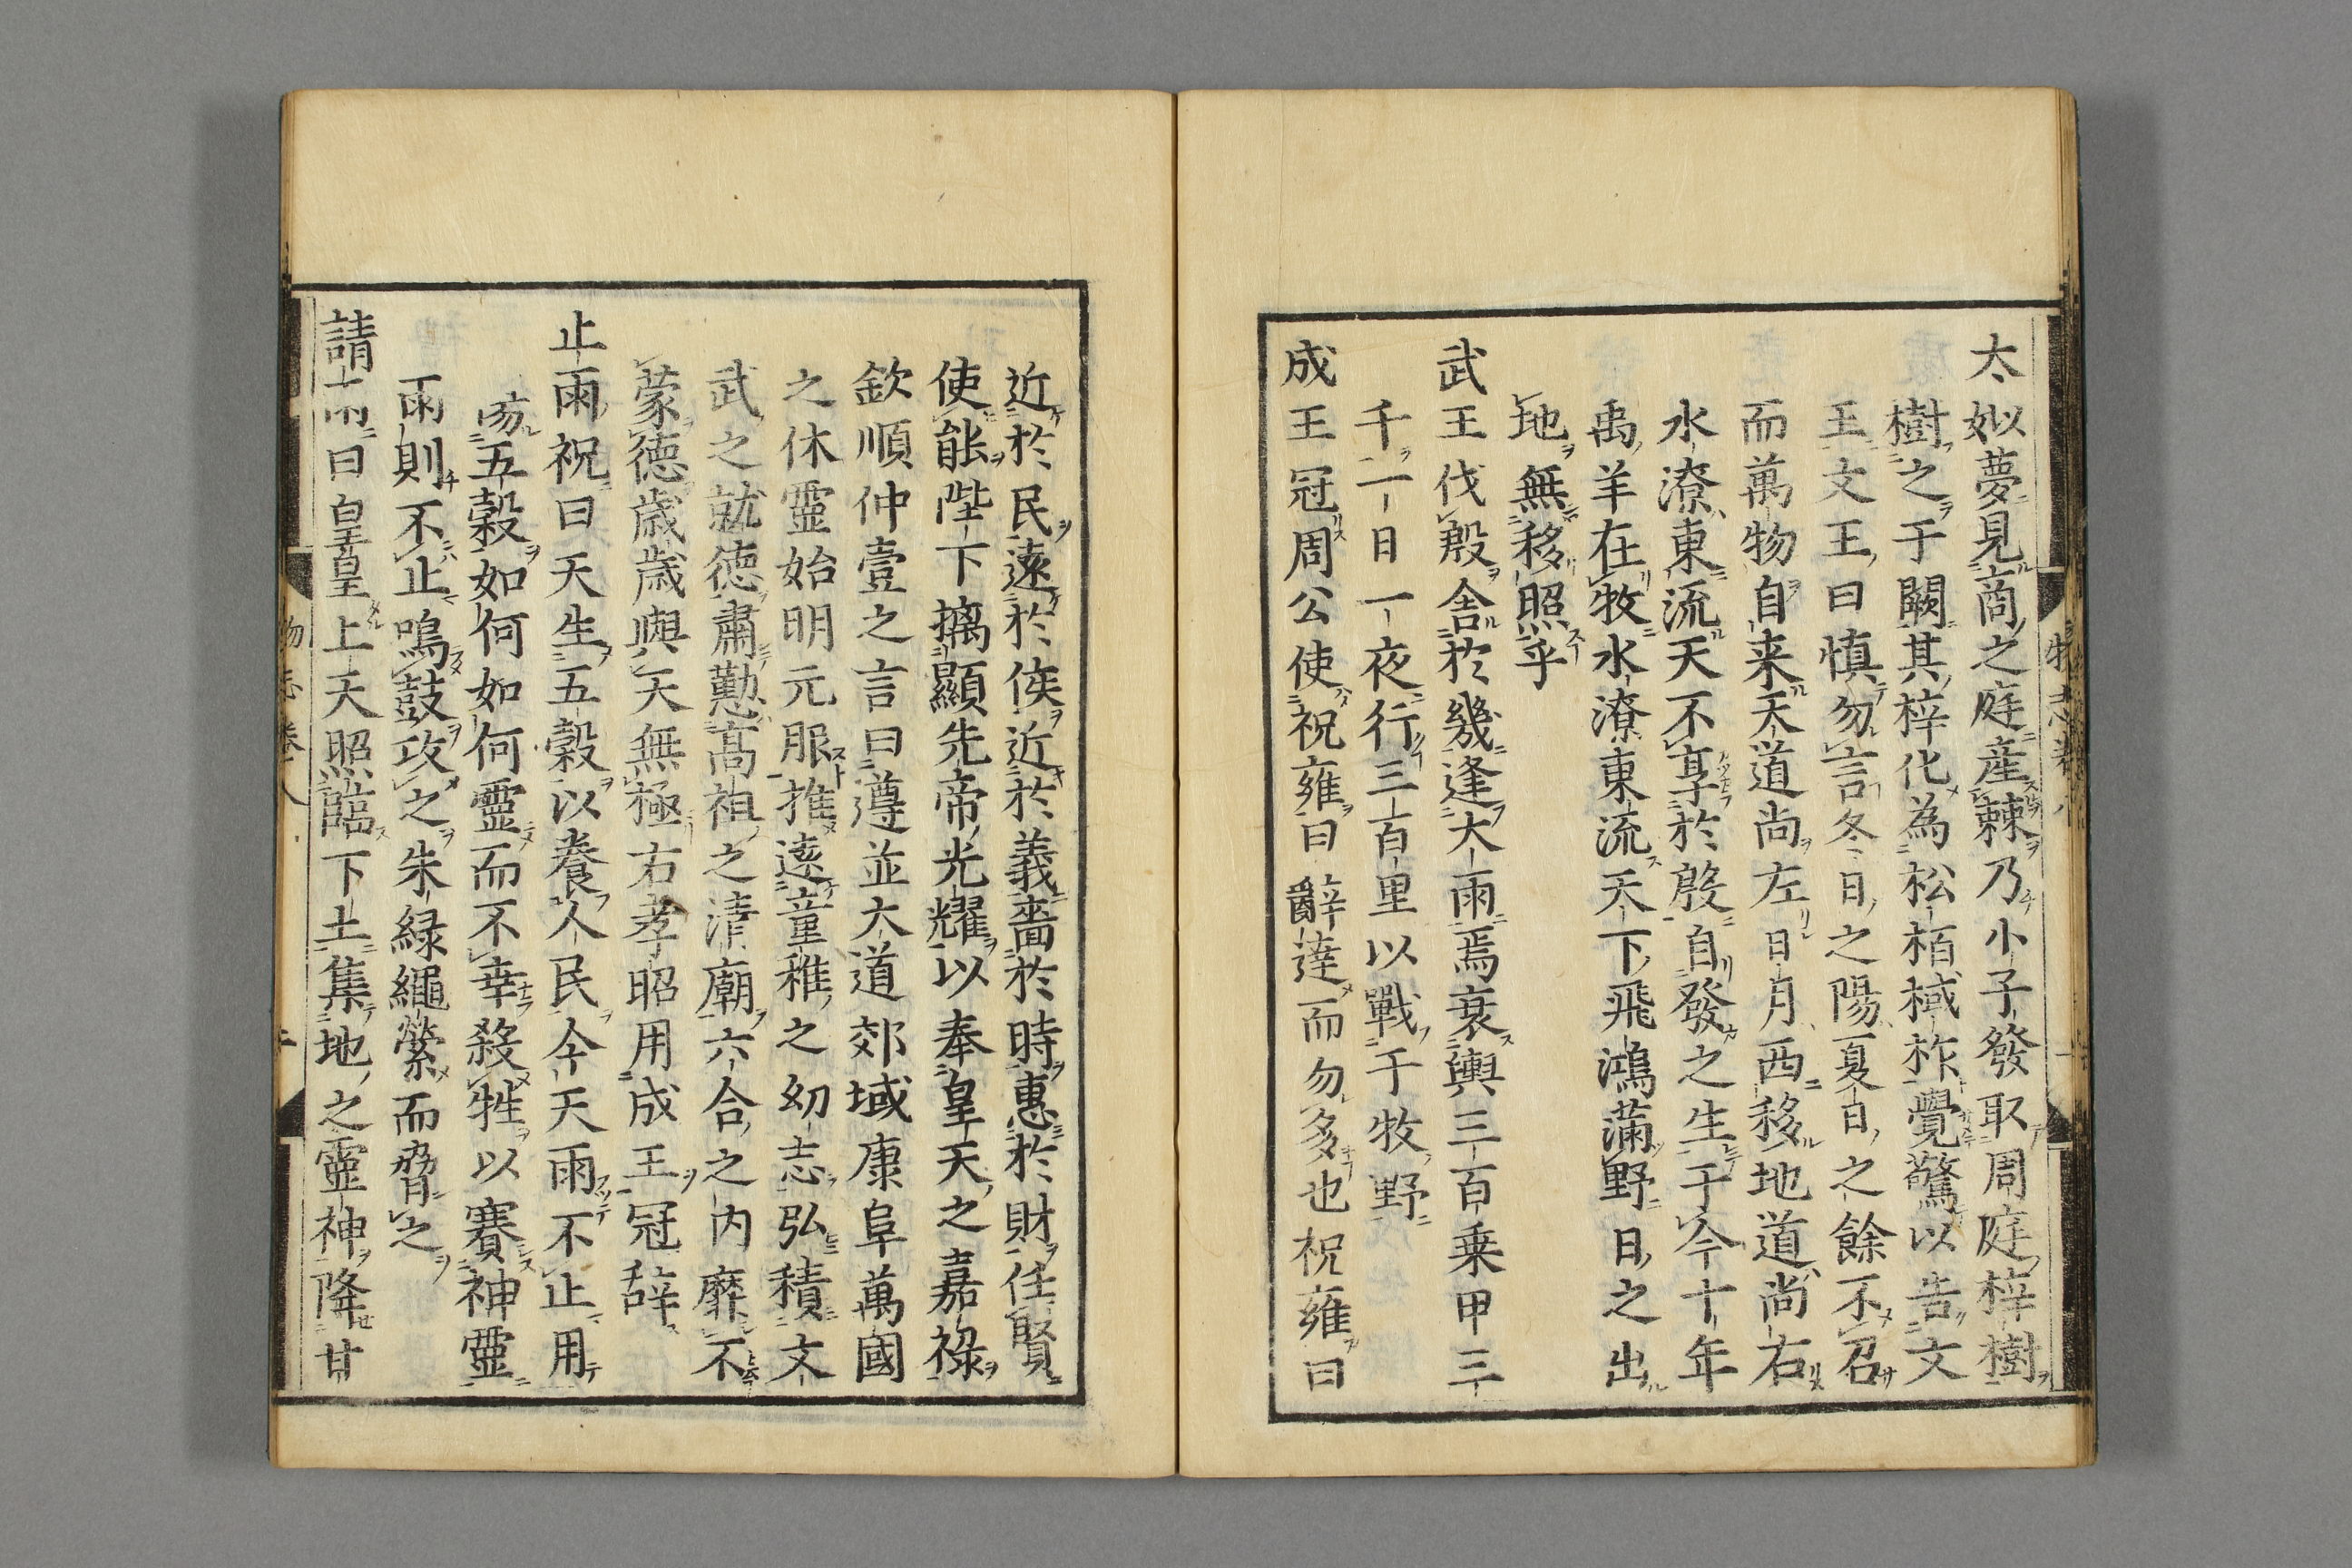 太姒夢見商之庭産棘乃小子發取周庭梓樹
樹之于闕其梓化為松栢棫柞覺驚以告文
王文王曰慎勿言冬日之陽夏日之餘不召
而萬物自来天道尚左日月西移地道尚右
水潦東流天不享於殷自發之生于今十年
禹羊在牧水潦東流天下飛鴻滿野日之出
地無移照乎
武王伐殷舎於幾逢大雨焉衰輿三百乗甲三
千一日一夜行三百里以戰于牧野
成王冠周公使祝雍曰辭達而勿多也祝雍曰
近於民遠於侫近於義嗇於時惠於財任賢
使能陛下摛顯先帝光耀以奉皇天之嘉禄
欽順仲壹之言曰遵並大道郊域康阜萬國
之休靈始明元服推遠童稚之幼志弘積文
武之就徳肅懃高祖之清廟六合之内靡不
蒙徳歳歳與天無極右孝昭用成王冠辞
止雨祝曰天生五穀以養人民今天雨不止用
傷五穀如何如何靈而不幸殺牲以賽神靈
雨則不止鳴鼓攻之朱緑繩縈而脅之
請雨曰皇皇上天照臨下土集地之靈神降甘
物志巻八